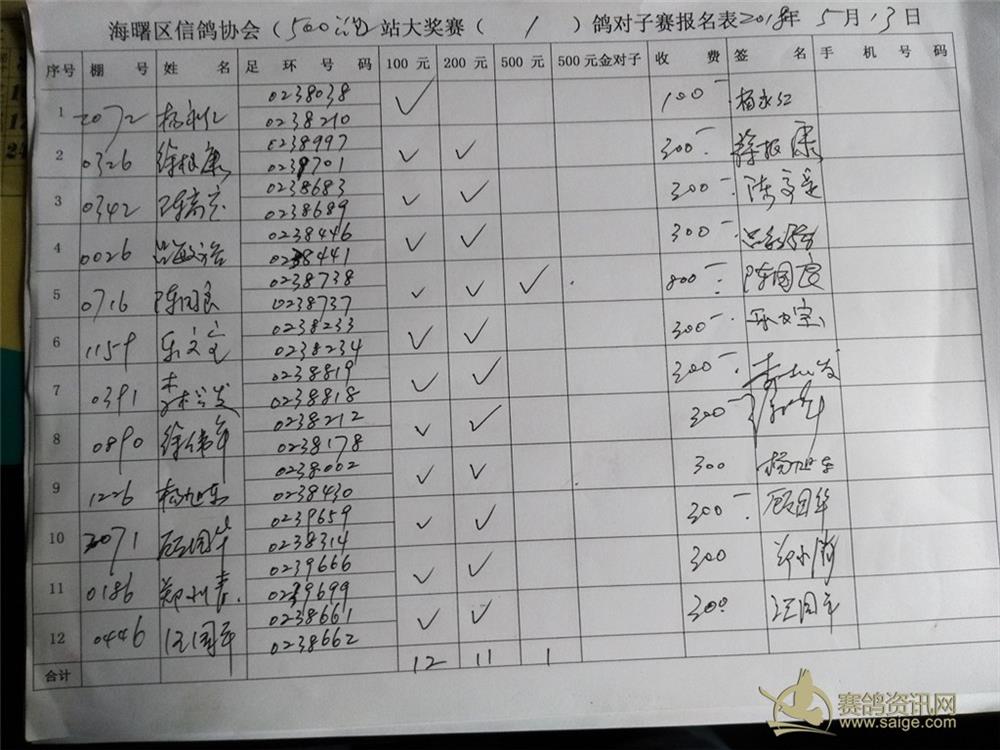 海曙区信鸽协会（500 站大奖赛（ 1 ）鸽对子赛报名表2018年 5月13日
序号 棚号 姓名 足环号码 100元 200元 500元 500元金对子 收费 签名 手机号码
1 2072 杨永仁 0238038 ✓ 100 杨永仁
0238210
2 0326 徐振康 0238997 ✓ ✓ 300 徐振康
0239701
3 0342 0238683 ✓ ✓ 300
0238689
4 0026 0238446 ✓ ✓ 300
0238441
5 0716 陈国良 0238738 ✓ ✓ ✓ 800 陈国良
0238737
6 1159 乐文宝 0238233 ✓ ✓ 300 乐文宝
0238234
7 0391 0238819 ✓ ✓ 300
0238818
8 0890 徐伟年 0238212 ✓ ✓ 300
0238178
9 1226 杨旭东 0238002 ✓ ✓ 300 杨旭东
0238430
10 2071 顾国华 0239659 ✓ ✓ 300 顾国华
0238314
11 0186 0239666 ✓ ✓ 300
0239699
12 0446 汪国平 0238661 ✓ ✓ 300 汪国平
0238662
合计 12 11 1
赛鸽资讯网
www.saige.com